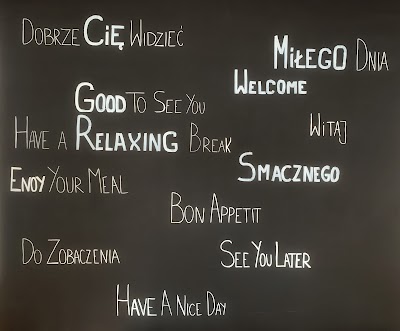 Dobrze Cię Widzieć
Miłego Dnia
Welcome
Good To See You
Witaj
Have a Relaxing Break
Smacznego
Enoy Your Meal
Bon Appetit
Do Zobaczenia
See You Later
Have A Nice Day